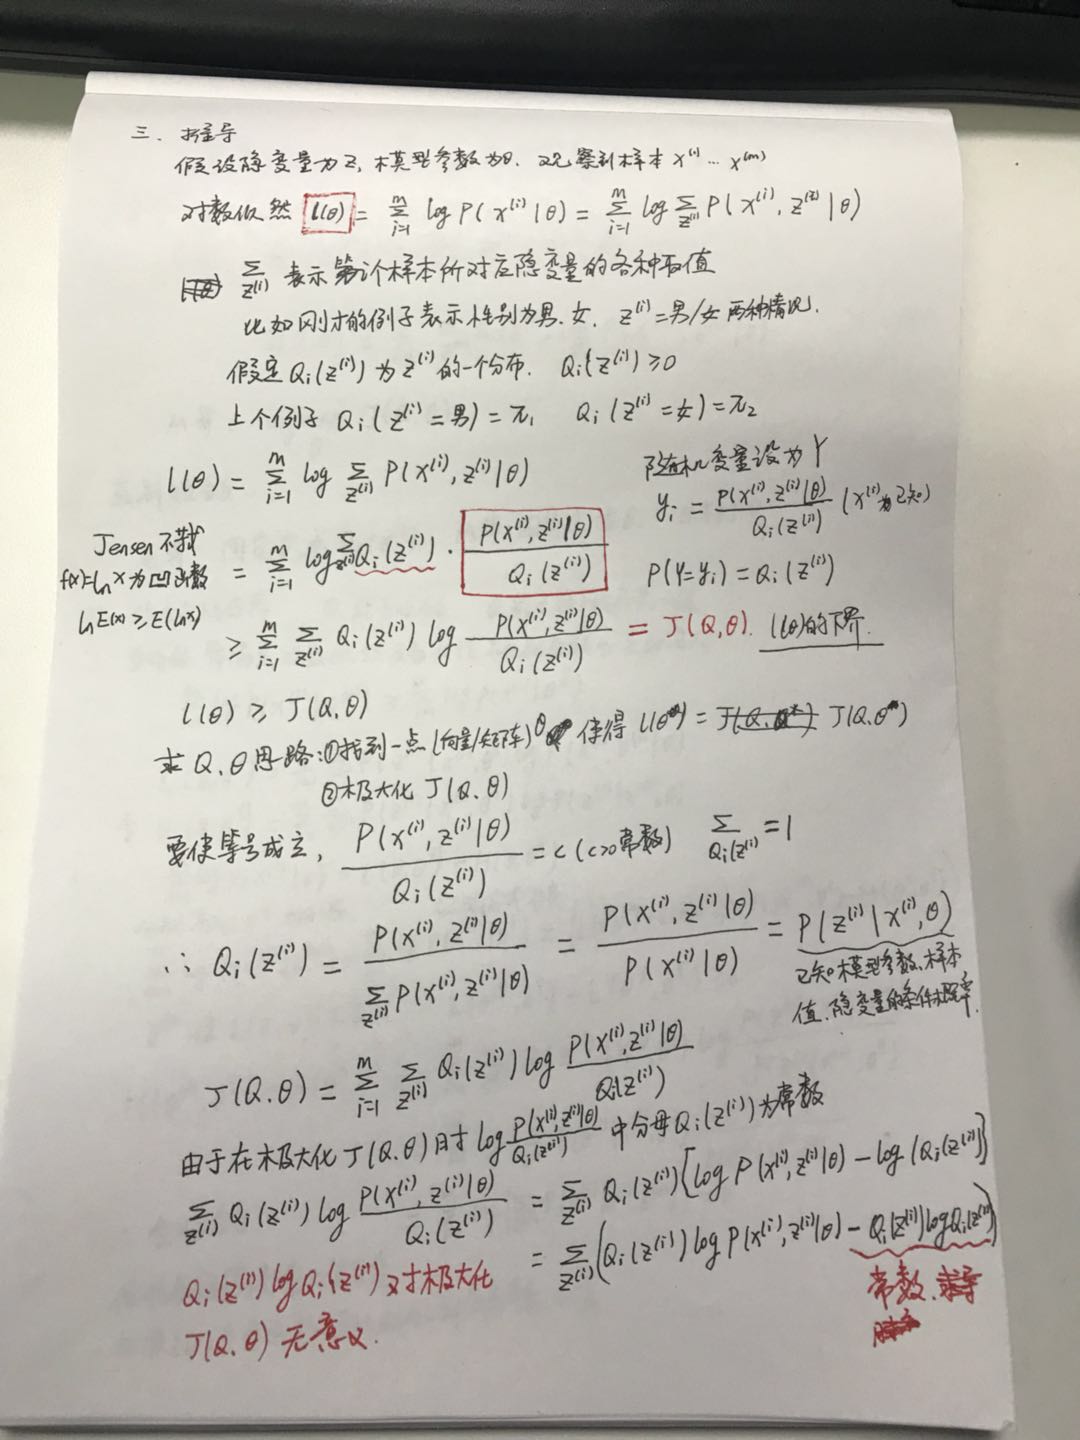 三、推导
假设隐变量为Z,模型参数为θ.观察到样本 x⁽¹⁾ … x⁽ᵐ⁾
对数似然 l(θ) = Σᵢ₌₁ᵐ log P(x⁽ⁱ⁾|θ) = Σᵢ₌₁ᵐ log Σ_z⁽ⁱ⁾ P(x⁽ⁱ⁾, z⁽ⁱ⁾|θ)
Σ_z⁽ⁱ⁾ 表示第i个样本所对应隐变量的各种取值
比如刚才的例子表示性别为男.女. z⁽ⁱ⁾=男/女两种情况.
假定 Qᵢ(z⁽ⁱ⁾) 为 z⁽ⁱ⁾ 的一个分布. Qᵢ(z⁽ⁱ⁾) ≥ 0
上个例子 Qᵢ(z⁽ⁱ⁾=男) = π₁ Qᵢ(z⁽ⁱ⁾=女) = π₂
l(θ) = Σᵢ₌₁ᵐ log Σ_z⁽ⁱ⁾ P(x⁽ⁱ⁾, z⁽ⁱ⁾|θ)
随机变量设为Y
yᵢ = P(x⁽ⁱ⁾, z⁽ⁱ⁾|θ) / Qᵢ(z⁽ⁱ⁾) (x⁽ⁱ⁾为已知)
P(Y=yᵢ) = Qᵢ(z⁽ⁱ⁾)
Jensen不等式
f(x)=ln x 为凹函数
ln E(x) ≥ E(ln x)
= Σᵢ₌₁ᵐ log Σ_z⁽ⁱ⁾ Qᵢ(z⁽ⁱ⁾) · P(x⁽ⁱ⁾, z⁽ⁱ⁾|θ) / Qᵢ(z⁽ⁱ⁾)
≥ Σᵢ₌₁ᵐ Σ_z⁽ⁱ⁾ Qᵢ(z⁽ⁱ⁾) log P(x⁽ⁱ⁾, z⁽ⁱ⁾|θ) / Qᵢ(z⁽ⁱ⁾) = J(Q,θ). l(θ)的下界.
l(θ) ≥ J(Q,θ)
求Q,θ思路:①找到一点(向量/矩阵)θ 使得 l(θ*) = J(Q,θ*)
②极大化 J(Q,θ)
要使等号成立, P(x⁽ⁱ⁾, z⁽ⁱ⁾|θ) / Qᵢ(z⁽ⁱ⁾) = c (c>0常数) Σ_Qᵢ(z⁽ⁱ⁾) = 1
∴ Qᵢ(z⁽ⁱ⁾) = P(x⁽ⁱ⁾, z⁽ⁱ⁾|θ) / Σ_z⁽ⁱ⁾ P(x⁽ⁱ⁾, z⁽ⁱ⁾|θ) = P(x⁽ⁱ⁾, z⁽ⁱ⁾|θ) / P(x⁽ⁱ⁾|θ) = P(z⁽ⁱ⁾|x⁽ⁱ⁾,θ)
已知模型参数,样本
值.隐变量的条件概率.
J(Q,θ) = Σᵢ₌₁ᵐ Σ_z⁽ⁱ⁾ Qᵢ(z⁽ⁱ⁾) log P(x⁽ⁱ⁾,z⁽ⁱ⁾|θ) / Qᵢ(z⁽ⁱ⁾)
由于在极大化 J(Q,θ)时 log P(x⁽ⁱ⁾,z⁽ⁱ⁾|θ) / Qᵢ(z⁽ⁱ⁾) 中分母Qᵢ(z⁽ⁱ⁾)为常数
Σ_z⁽ⁱ⁾ Qᵢ(z⁽ⁱ⁾) log P(x⁽ⁱ⁾, z⁽ⁱ⁾|θ) / Qᵢ(z⁽ⁱ⁾) = Σ_z⁽ⁱ⁾ Qᵢ(z⁽ⁱ⁾){log P(x⁽ⁱ⁾, z⁽ⁱ⁾|θ) − log(Qᵢ(z⁽ⁱ⁾)}
= Σ_z⁽ⁱ⁾ (Qᵢ(z⁽ⁱ⁾) log P(x⁽ⁱ⁾, z⁽ⁱ⁾|θ) − Qᵢ(z⁽ⁱ⁾) log Qᵢ(z⁽ⁱ⁾))
常数.
Qᵢ(z⁽ⁱ⁾) log Qᵢ(z⁽ⁱ⁾) 对极大化
J(Q,θ) 无意义.